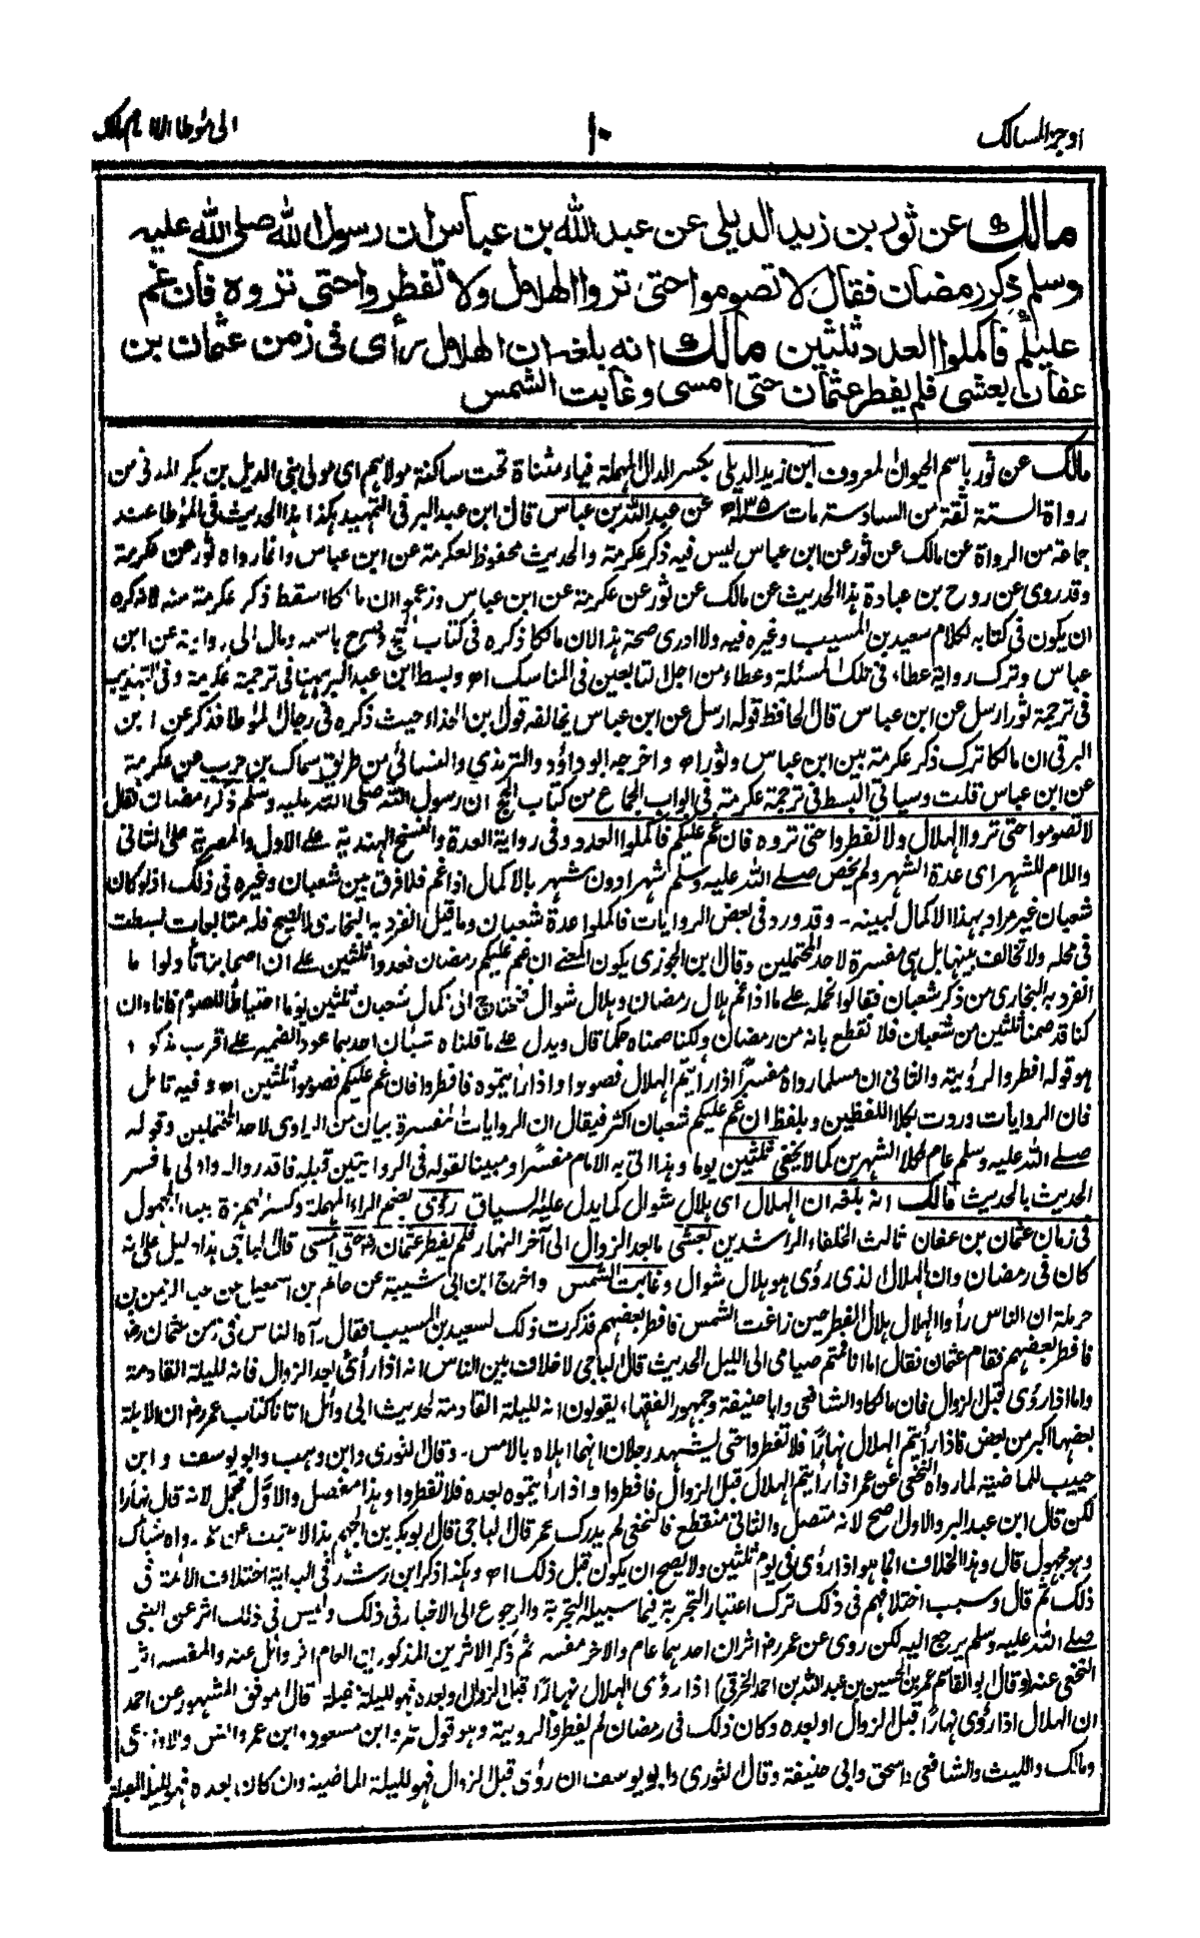 اوجز المسالک
۱۰
الی مؤطا الامام مالک
مالك عن ثور بن زيد الديلى عن عبد الله بن عباس ان رسول الله صلى الله عليه
وسلم ذكر رمضان فقال لا تصوموا حتى تروا الهلال ولا تفطروا حتى تروه فان غم
عليكم فاكملوا العدد ثلثين مالك انه بلغه ان الهلال رأى فى زمن عثمان بن
عفان بعشى فلم يفطر عثمان حتى امسى وغابت الشمس
مالک عن ثور باسم الحيوان المعروف ابن زيد الديلى بكسر الدال المهملة فياء مثناة تحت ساكنة مولاهم اى مولى بنى الديل بن بكر المدنى من
رواة الستة ثقة من السادسة مات ۱۳۵ھ عن عبد الله بن عباس قال ابن عبد البر فى التمهيد هكذا هذا الحديث فى المؤطا عند
جماعة من الرواة عن مالك عن ثور عن ابن عباس ليس فيه ذكر عكرمة والحديث محفوظ لعكرمة عن ابن عباس وانما رواه ثور عن عكرمة
وقد روى عن روح بن عبادة هذا الحديث عن مالك عن ثور عن عكرمة عن ابن عباس وزعموا ان مالكا اسقط ذكر عكرمة منه لانه كره
ان يكون فى كتابه لكلام سعيد بن المسيب وغيره فيه ولا ادرى صحة هذا لان مالكا ذكره فى كتاب الحج وصرح باسمه ومال الى روايته عن ابن
عباس وترك رواية عطاء فى تلك المسئلة وعطاء من اجل التابعين فى المناسك اه وبسط ابن عبد البر ههنا فى ترجمة عكرمة وفى التهذيب
فى ترجمة ثور ارسل عن ابن عباس قال الحافظ قوله ارسل عن ابن عباس يخالفه قول ابن الحذاء حيث ذكره فى رجال المؤطا فذكر عن ابن
البرقى ان مالكا ترك ذكر عكرمة بين ابن عباس وثور اه واخرجه ابو داؤد والترمذى والنسائى من طريق سماك بن حرب عن عكرمة
عن ابن عباس قلت وسيأتى البسط فى ترجمة عكرمة فى ابواب الجماع من كتاب الحج ان رسول الله صلى الله عليه وسلم ذكر رمضان فقال
لا تصوموا حتى تروا الهلال ولا تفطروا حتى تروه فان غم عليكم فاكملوا العدد وفى رواية العدة والنسخ الهندية على الاول والمصرية على الثانى
واللام للشهر اى عدة الشهر ولم يخص صلى الله عليه وسلم شهرا دون شهر بالاكمال اذا غم فلا فرق بين شعبان وغيره فى ذلك اذ لو كان
شعبان غير مراد بهذا الاكمال لبينه ـ وقد ورد فى بعض الروايات فاكملوا عدة شعبان وما قيل انفرد به البخارى لا يصح فله متابعات بسطت
فى محله ولا تخالف بينها بل هى مفسرة لاحد المحتملين وقال ابن الجوزى يكون المعنى ان غم عليكم رمضان فعدوا ثلثين على ان اصحابنا تأولوا ما
انفرد به البخارى من ذكر شعبان فقالوا نحمله على ما اذا غم هلال رمضان وهلال شوال فنحتاج الى كمال شعبان ثلثين يوما احتياطا للصوم فانا وان
كنا قد صمنا ثلثين من شعبان فلا نقطع بانه من رمضان ولكنا صمناه حكما قال ويدل على ما قلناه شيئان احدهما عود الضمير على اقرب مذكور
هو قوله افطروا لرؤيته والثانى ان مسلما رواه مفسرا اذا رأيتم الهلال فصوموا واذا رأيتموه فافطروا فان غم عليكم فصوموا ثلثين اه وفيه تامل
فان الروايات وردت بكلا اللفظين وبلفظ ان غم عليكم شعبان اكثر فيقال ان الروايات مفسرة بيان من الراوى لاحد المحتملين وقوله
صلى الله عليه وسلم عام لكلا الشهرين كما لا يخفى ثلثين يوما وهذا اتى به الامام مفسرا ومبينا لقوله فى الروايتين قبله فاقدروا له واولى ما فسر
الحديث بالحديث مالك انه بلغه ان الهلال اى هلال شوال كما يدل عليه السياق رؤى بضم الراء المهملة وكسر الهمزة ببناء المجهول
فى زمان عثمان بن عفان ثالث الخلفاء الراشدين بعشى ما بعد الزوال الى آخر النهار فلم يفطر عثمان رضحتى امسى قال الباجى هذا دليل على انه
كان فى رمضان وان الهلال الذى رؤى هو هلال شوال وغابت الشمس واخرج ابن ابى شيبة عن حاتم بن اسمعيل عن عبد الرحمن بن
حرملة ان الناس رأوا الهلال هلال الفطر حين زاغت الشمس فافطر بعضهم فذكرت ذلك لسعيد بن المسيب فقال رآه الناس فى زمن عثمان رض
فافطر بعضهم فقام عثمان فقال اما انا فمتم صيامى الى الليل الحديث قال الباجى لا خلاف بين الناس انه اذا رأى بعد الزوال فانه لليلة القادمة
واما اذا رؤى قبل الزوال فان مالكا والشافعى وابا حنيفة وجمهور الفقهاء يقولون انه لليلة القادمة لحديث ابى وائل اتانا كتاب عمر رض ان الاهلة
بعضها اكبر من بعض فاذا رأيتم الهلال نهارا فلا تفطروا حتى يشهد رجلان انهما اهلاه بالامس ـ وقال الثورى وابن وهب وابو يوسف وابن
حبيب للماضية لما رواه النخعى عن عمر اذا رأيتم الهلال قبل الزوال فافطروا واذا رأيتموه بعده فلا تفطروا وهذا مفصل والاول مجمل لانه قال نهارا
لكن قال ابن عبد البر والاول اصح لانه متصل والثانى منقطع فالنخعى لم يدرك عمر قال الباجى قال ابو بكر بن الجهم هذا لا يثبت عن عمر رواه شباك
وهو مجهول قال وهذا الخلاف انما هو اذا رؤى فى يوم ثلثين ولا يصح ان يكون قبل ذلك اه وهكذا ذكر ابن رشد فى البداية اختلاف الائمة فى
ذلك ثم قال وسبب اختلافهم فى ذلك ترك اعتبار التجربة فيما سبيله التجربة والرجوع الى الاخبار فى ذلك وليس فى ذلك اثر عن النبى
صلى الله عليه وسلم يرجع اليه لكن روى عن عمر رض اثران احدهما عام والاخر مفسر ثم ذكر الاثرين المذكورين العام اثر وائل عنه والمفسر اثر
النخعى عنه وقال ابو القاسم عمر بن الحسين بن عبد الله بن احمد الخرقى) اذا رؤى الهلال نهارا قبل الزوال وبعده فهو لليلة المقبلة قال الموفق المشهور عن احمد
ان الهلال اذا رؤى نهارا قبل الزوال او بعده وكان ذلك فى رمضان لم يفطروا لرؤيته وهو قول عمر وابن مسعود وابن عمر وانس والاوزاعى
ومالك والليث والشافعى واسحق وابى حنيفة وقال الثورى وابو يوسف ان رؤى قبل الزوال فهو لليلة الماضية وان كان بعده فهو لليلة المقبلة